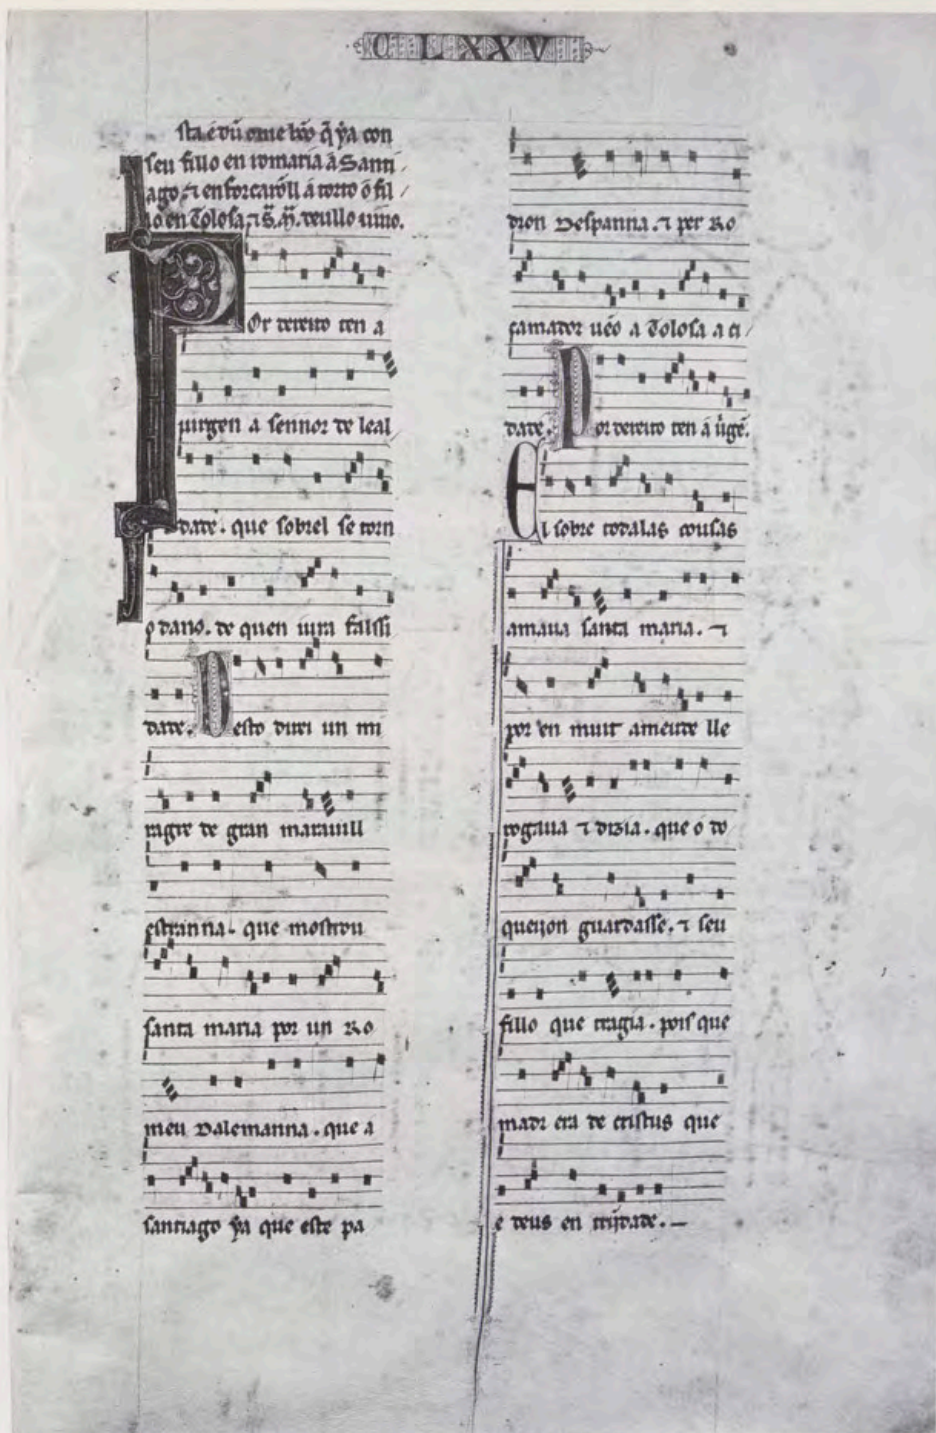 C L X X V
sta é dũ ome bõo q̃ ya con
seu fillo en romaria a Santi
ago, ⁊ enforcarõll a torto o fil
lo en Tolosa, ⁊ S. M̃. deullo uiuo.
POr dereito ten a
uirgen a sennor de leal
dade. que sobrel se torn
o dano. de quen iura falssi
dade. Desto direi un mi
ragre de gran marauill
estranna. que mostrou
santa maria por un Ro
meu Dalemanna. que a
santiago ya que este pa
dron Despanna. ⁊ per Ro
camador uẽo a Tolosa a ci
dade. Por dereito ten á uirgẽ.
El sobre todalas cousas
amaua santa maria. ⁊
por en muit ameude lle
rogaua ⁊ dizia. que o do
queijon guardasse. ⁊ seu
fillo que tragia. pois que
madr era de cristus que
e deus en trijdade.